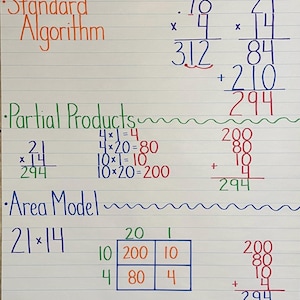 ·Standard
Algorithm
.78
× 4
312
21
× 14
84
+ 210
294
·Partial Products
21
× 14
294
4×1=4
4×20=80
10×1=10
10×20=200
200
80
10
+ 4
294
·Area Model
21×14
20 1
10 200 10
4 80 4
200
80
10
+ 4
294